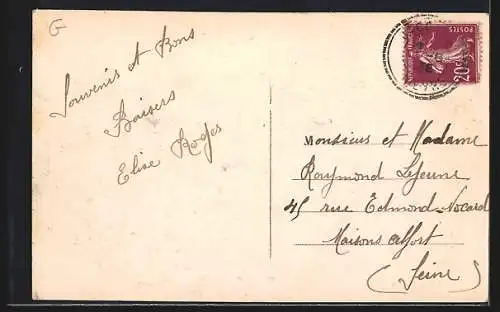 G
Souvenir et Bons
Baisers
Elise Roges
POSTES
20c
Monsieur et Madame
Raymond Lejeune
45 rue Edmond-Nocard
Maisons Alfort
(Seine)